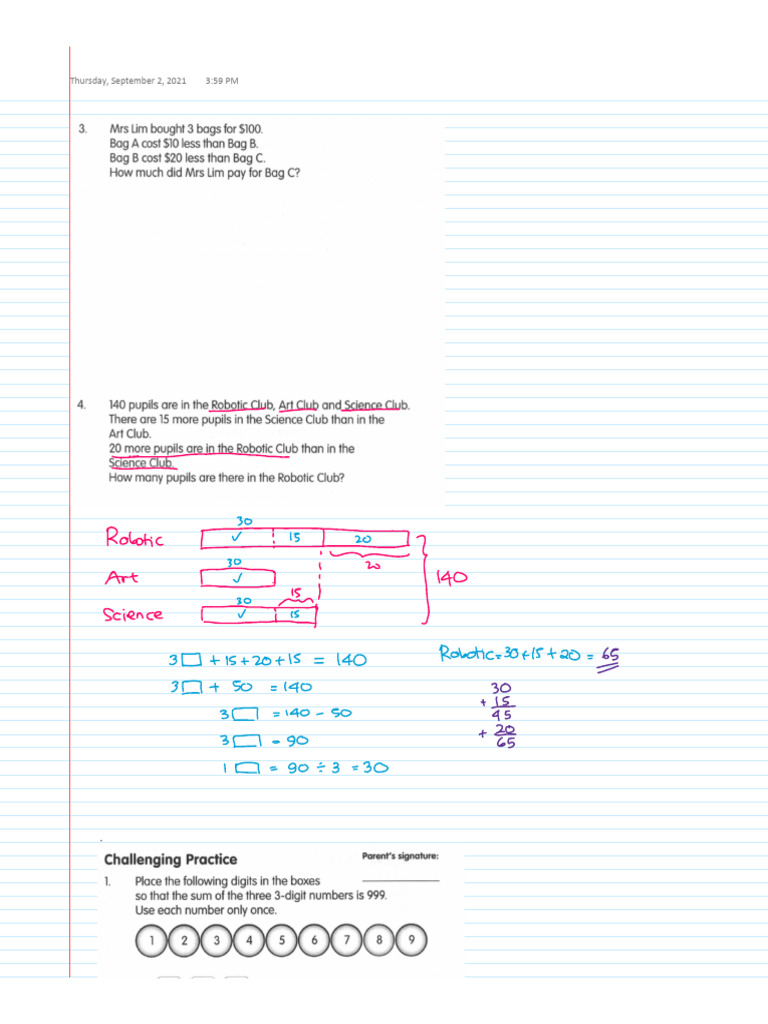 Thursday, September 2, 2021 3:59 PM
3. Mrs Lim bought 3 bags for $100.
Bag A cost $10 less than Bag B.
Bag B cost $20 less than Bag C.
How much did Mrs Lim pay for Bag C?
4. 140 pupils are in the Robotic Club, Art Club and Science Club.
There are 15 more pupils in the Science Club than in the
Art Club.
20 more pupils are in the Robotic Club than in the
Science Club.
How many pupils are there in the Robotic Club?
30
Robotic ✓ 15 20
20
30
Art ✓
140
30 15
Science ✓ 15
3□ + 15 + 20 + 15 = 140
3□ + 50 = 140
3□ = 140 - 50
3□ = 90
1□ = 90 ÷ 3 = 30
Robotic = 30 + 15 + 20 = 65
30
+ 15
45
+ 20
65
Challenging Practice
Parent's signature:
1. Place the following digits in the boxes
so that the sum of the three 3-digit numbers is 999.
Use each number only once.
1 2 3 4 5 6 7 8 9